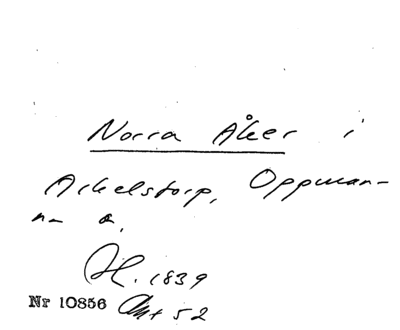 Norra Åker i
Arkelstorp, Oppman-
na s.
H. 1839
Nr 10856 Akt 52